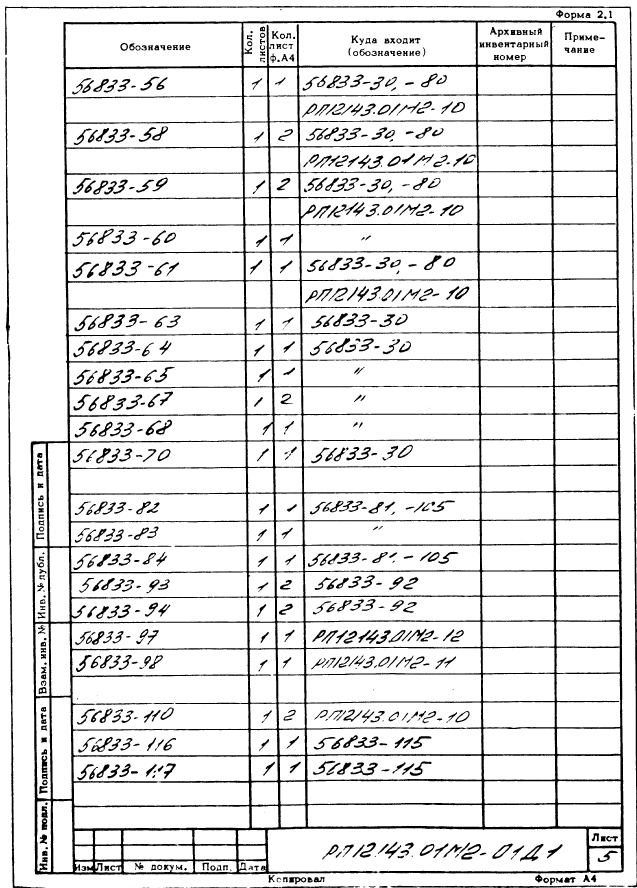 Форма 2.1
Обозначение Кол. листов Кол. лист ф.А4 Куда входит (обозначение) Архивный инвентарный номер Приме-чание
56833-56 1 1 56833-30, -80
РП12143.01М2-10
56833-58 1 2 56833-30, -80
РП12143.01М2-10
56833-59 1 2 56833-30, -80
РП12143.01М2-10
56833-60 1 1 〃
56833-61 1 1 56833-30, -80
РП12143.01М2-10
56833-63 1 1 56833-30
56833-64 1 1 56833-30
56833-65 1 1 〃
56833-67 1 2 〃
56833-68 1 1 〃
56833-70 1 1 56833-30
56833-82 1 1 56833-81, -105
56833-83 1 1 〃
56833-84 1 1 56833-81, -105
56833-93 1 2 56833-92
56833-94 1 2 56833-92
56833-97 1 1 РП12143.01М2-12
56833-98 1 1 РП12143.01М2-11
56833-110 1 2 РП12143.01М2-10
56833-116 1 1 56833-115
56833-117 1 1 56833-115
Подпись и дата
Инв. № дубл.
Взам. инв. №
Подпись и дата
Инв. № подл.
РП12143.01М2-01Д1
Лист
5
Изм Лист № докум. Подп. Дата
Копировал Формат А4